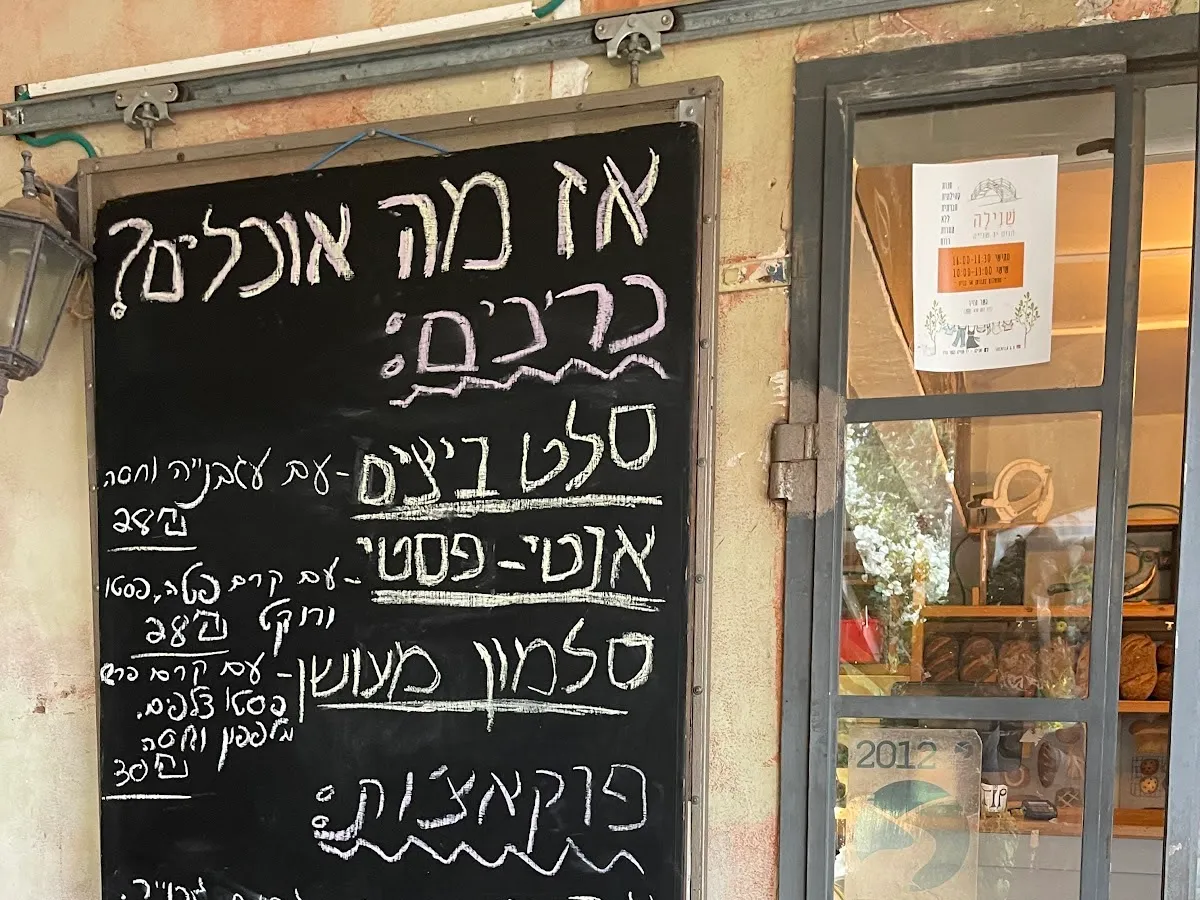 אז מה אוכלים?
כריכים:
סלט ביצים - עם עגבנייה וחסה
28 ₪
אנטי-פסטי - עם קרם פטה, פסטו
ורוקט
28 ₪
סלמון מעושן - עם קרם פרש
פסטו צלפים,
מלפפון וחסה
30 ₪
פוקאצ'ות:
שנילה
חמישי 11:30-
שישי
2012